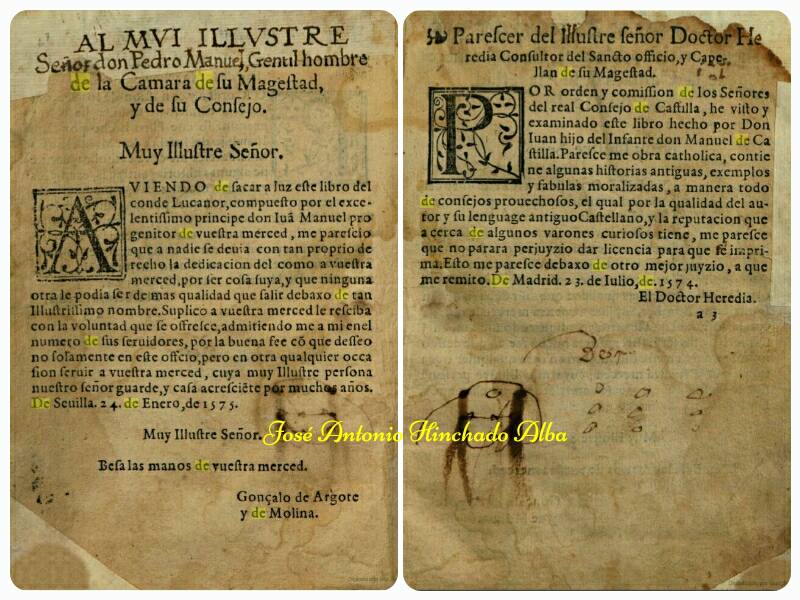 AL MVI ILLVSTRE
Señor don Pedro Manuel, Gentil hombre
de la Camara de su Magestad,
y de su Consejo.
Muy Illustre Señor.
AVIENDO de sacar a luz este libro del
conde Lucanor, compuesto por el exce-
lentissimo principe don Iuã Manuel pro
genitor de vuestra merced, me parescio
que a nadie se deuia con tan proprio de
recho la dedicacion del como a vuestra
merced, por ser cosa suya, y que ninguna
otra le podia ser de mas qualidad que salir debaxo de tan
Illustrissimo nombre. Suplico a vuestra merced le resciba
con la voluntad que se offresce, admitiendo me a mi en el
numero de sus seruidores, por la buena fee cõ que desseo
no solamente en este offcio, pero en otra qualquier occa
sion seruir a vuestra merced, cuya muy Illustre persona
nuestro señor guarde, y casa acresciẽte por muchos años.
De Seuilla. 24. de Enero, de 1575.
Muy Illustre Señor.
Besa las manos de vuestra merced.
Gonçalo de Argote
y de Molina.
Parescer del Illustre señor Doctor He
redia Consultor del Sancto officio, y Cape-
llan de su Magestad.
POR orden y comission de los Señores
del real Consejo de Castilla, he visto y
examinado este libro hecho por Don
Iuan hijo del Infante don Manuel de Ca
stilla. Paresce me obra catholica, contie
ne algunas historias antiguas, exemplos
y fabulas moralizadas, a manera todo
de consejos prouechosos, el qual por la qualidad del au-
tor y su lenguage antiguo Castellano, y la reputacion que
acerca de algunos varones curiosos tiene, me paresce
que no parara perjuyzio dar licencia para que se impri-
ma. Esto me paresce debaxo de otro mejor juyzio, a que
me remito. De Madrid. 23. de Iulio, de. 1574.
El Doctor Heredia.
a 3
José Antonio Hinchado Alba